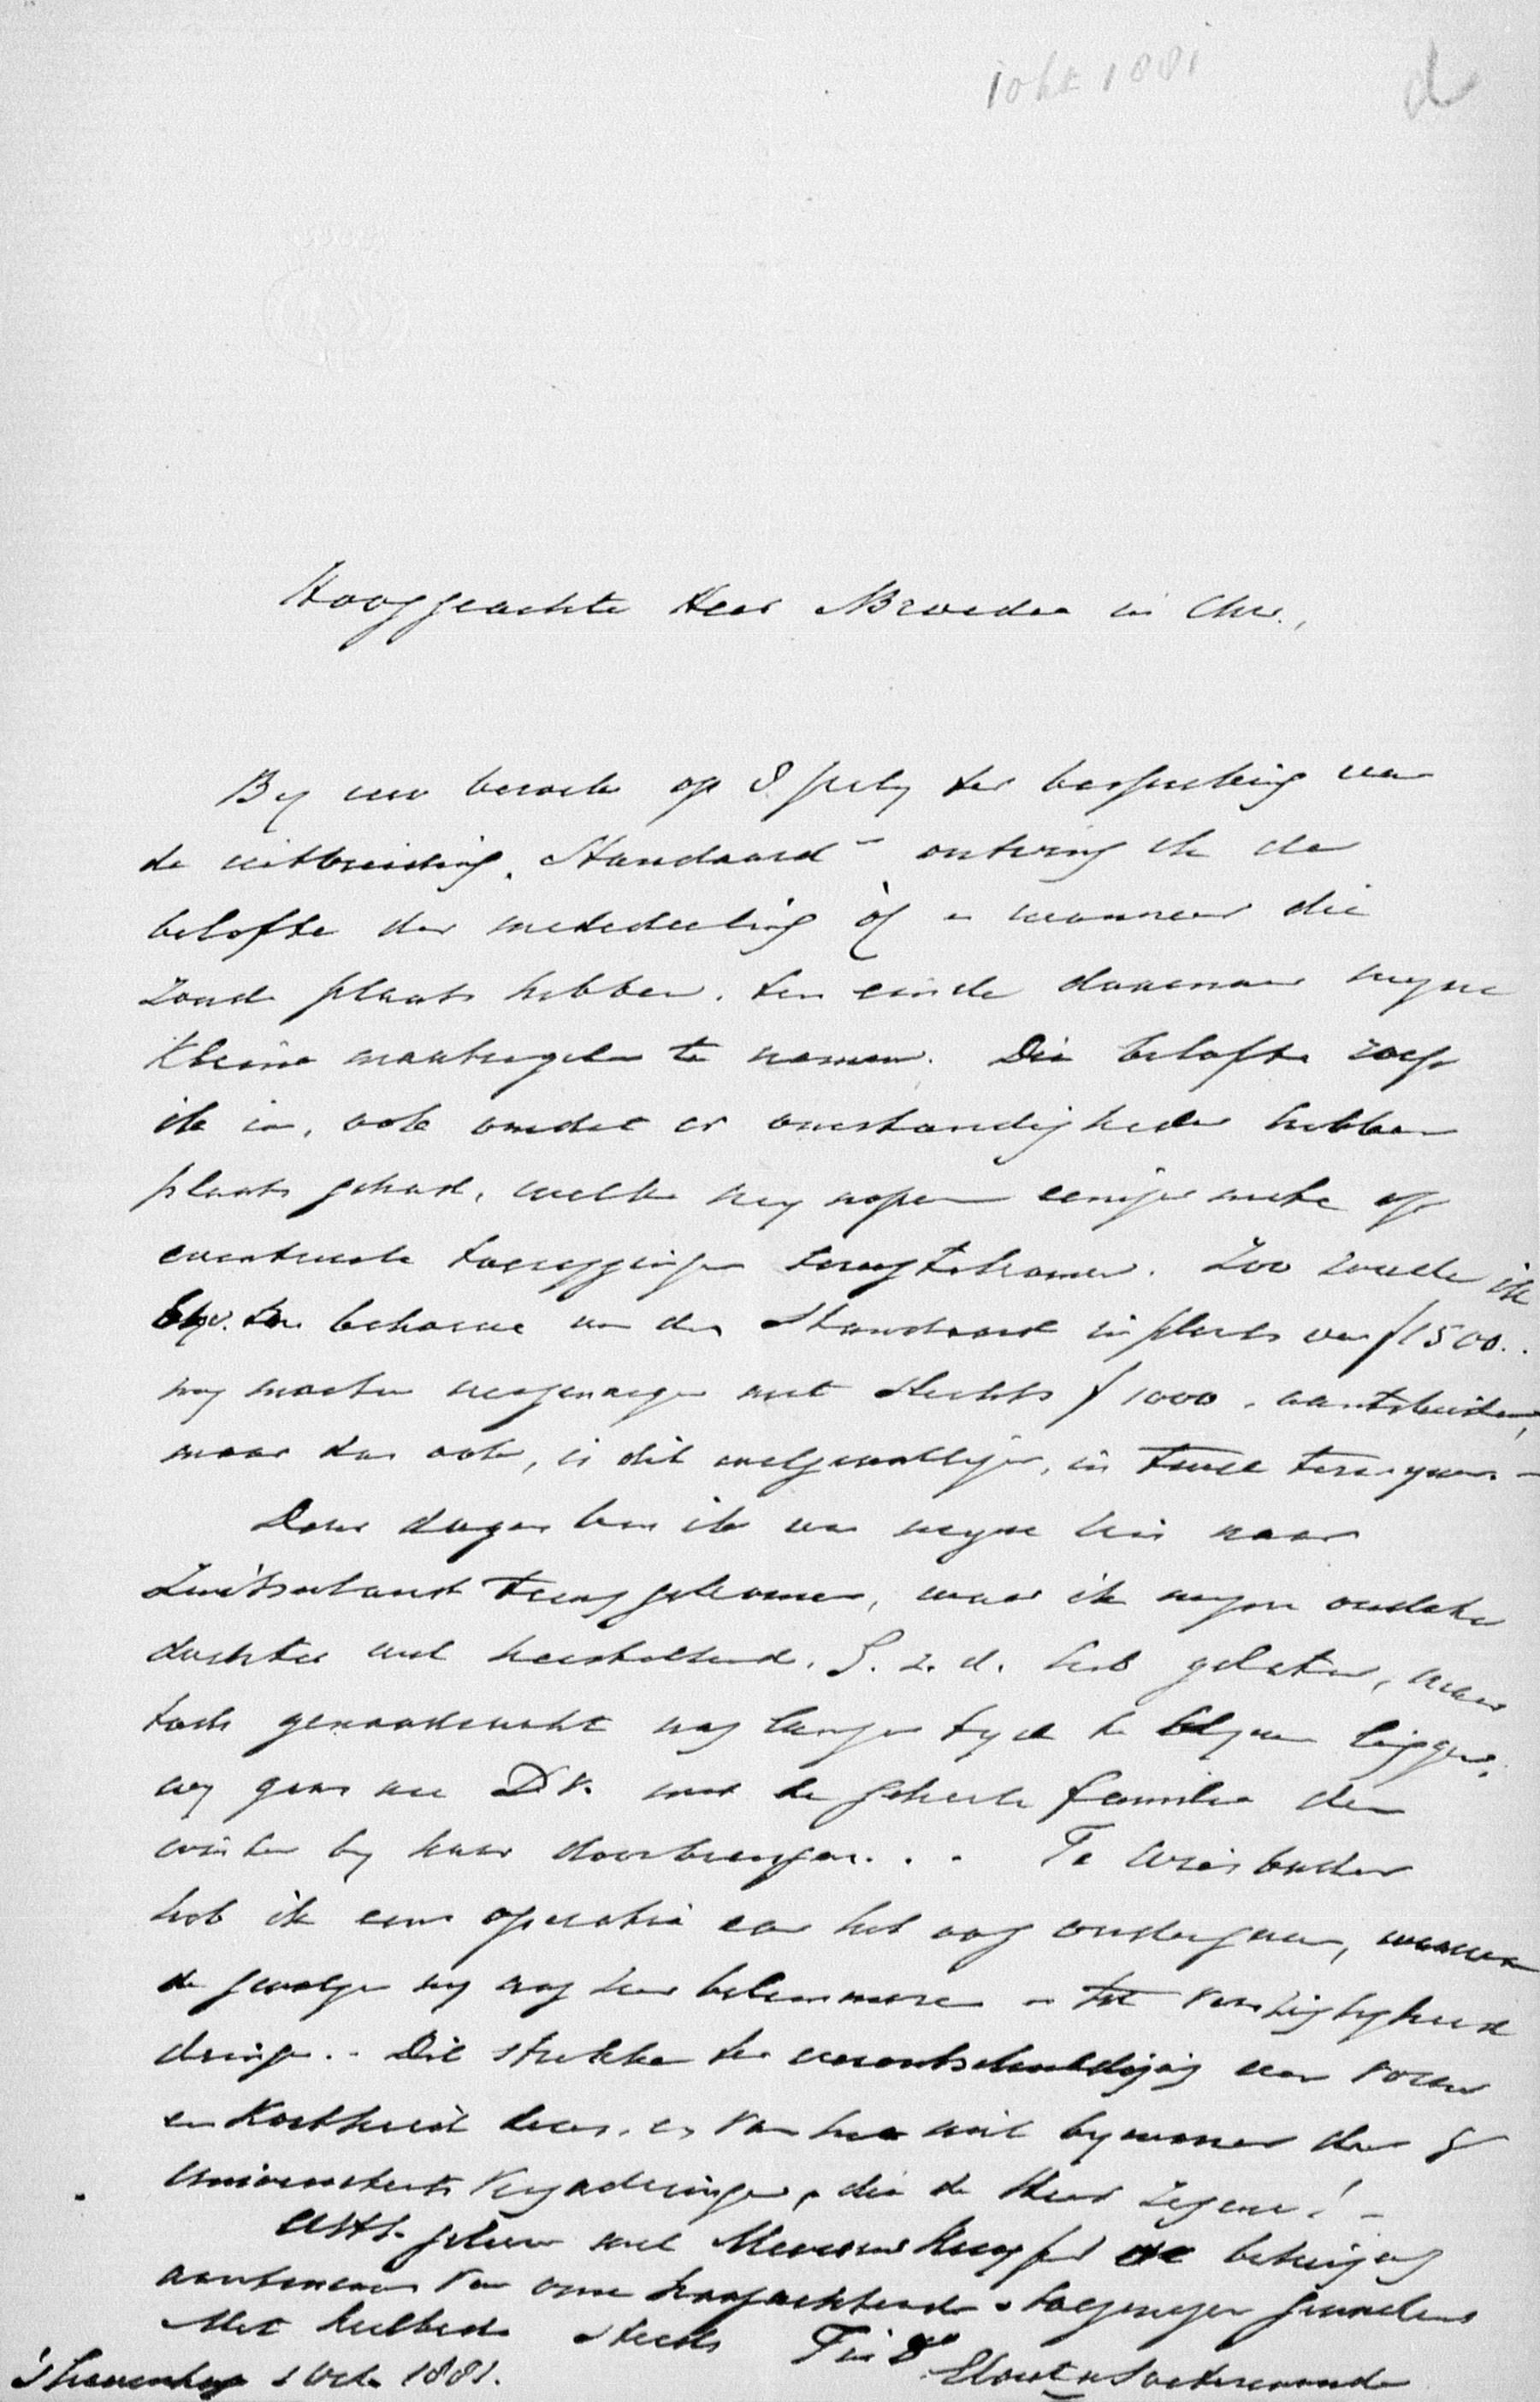 1 okt 1881
d
Hooggeachte Heer & Broeder in Chr.,
By uw bezoek op 8 July ter bespreking van
de uitbreiding „Standaard" ontving ik de
belofte der mededeeling òf en wanneer die
zoude plaats hebben, ten einde daarnaar myne
kleine maatregelen te nemen. Die belofte roep
ik in, ook omdat er omstandigheden hebben
plaats gehad, welke my nopen eenigermate op
eventueele toezeggingen terugtekomen. Zoo zoude ik
bv. ten behoeve van den Standaard in plaats van f 1500..
my moeten vergenoegen met slechts f 1000. aantebieden,
maar dan ook, is dit welgevalliger, in twee termynen. -
Dezer dagen ben ik van myne reis naar
Zwitserland teruggekomen, waar ik myne oudste
dochter wel herstellend, G. z. d. heb gelaten, maar
toch genoodzaakt nog langer tyd te blyven liggen.
wy gaan nu D.V. met de geheele familie den
winter by haar doorbrengen. . . Te Wiesbaden
heb ik eene operatie aan het oog ondergaan, waarvan
de gevolgen my nog zeer belemmeren en tot voorzigtigheid
dringen.. Dit strekke ter verontschuldiging van vorm
en kortheid dezer, en van het niet bywonen der
Universiteits Vergaderingen, die de Heer zegene! -
gelieve met Mevrouw Kuyper de betuiging
aantenemen van onze hoogachtende & toegenegen
Met heilbede steeds T in X°
Elout v Soeterwoude
's Gravenhage 1 Oct. 1881.